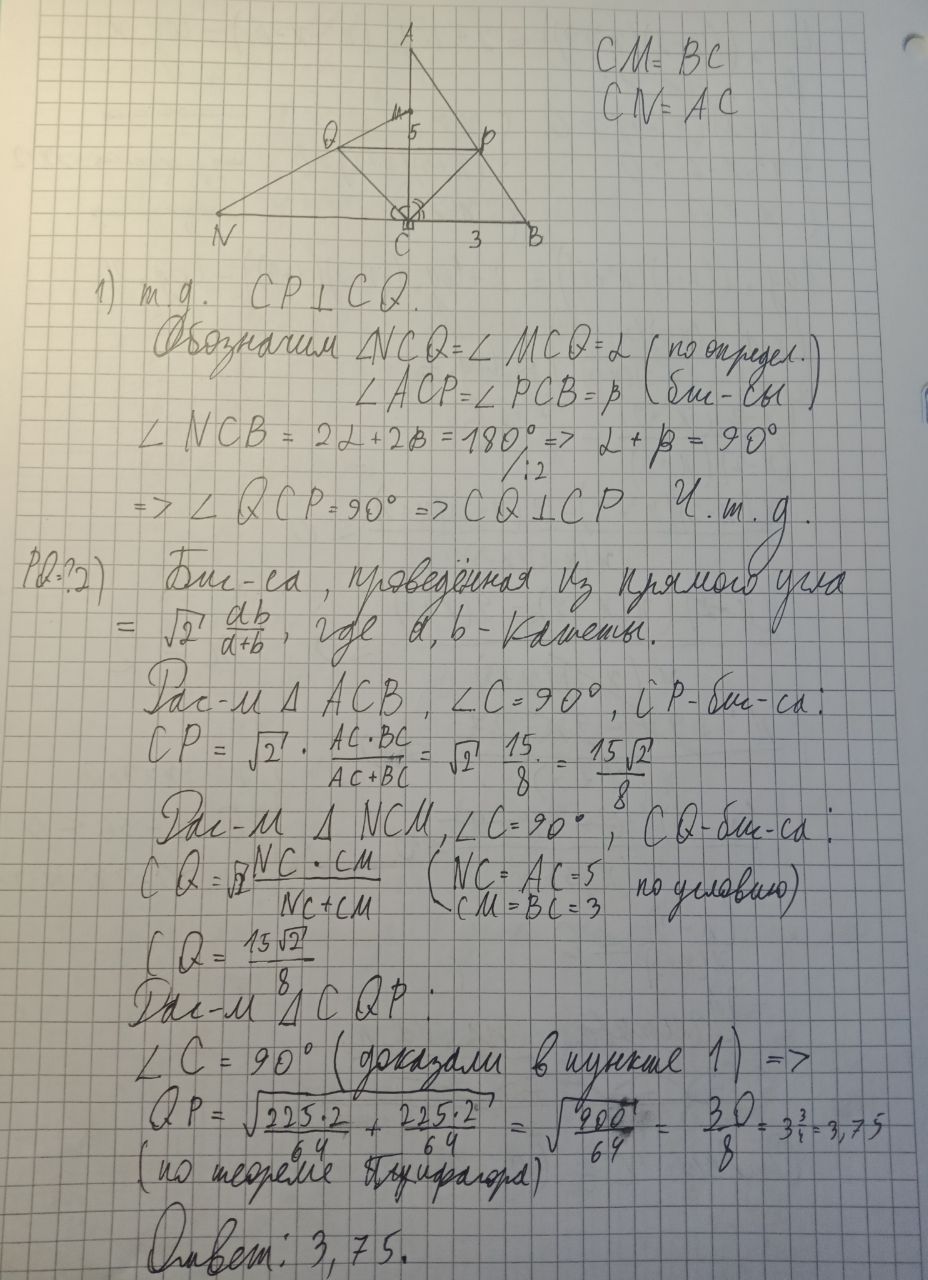 A
CM = BC
CN = AC
M
5
Q
P
N
C
3
B
1) т.д. CP⊥CQ.
Обозначим ∠NCQ=∠MCQ=α (по определ.
∠ACP=∠PCB=β биc-сы)
∠NCB = 2α+2β = 180° => α+β = 90°
/:2
=> ∠QCP=90° => CQ⊥CP Ч.т.д.
PQ=? 2) Бис-са, проведённая из прямого угла
= √2 ab/a+b, где a, b - катеты.
Рас-м Δ ACB, ∠C=90°, CP-бис-са:
CP = √2 · AC·BC/AC+BC = √2 15/8 = 15√2/8
Рас-м Δ NCM, ∠C=90°, CQ-бис-са:
CQ = √2 NC·CM/NC+CM (NC=AC=5 по условию)
CM=BC=3
CQ = 15√2/8
Рас-м Δ CQP:
∠C = 90° (доказали в пункте 1) =>
QP = √225·2/64 + 225·2/64 = √900/64 = 30/8 = 3 3/4 = 3,75
(по теореме Пифагора)
Ответ: 3,75.